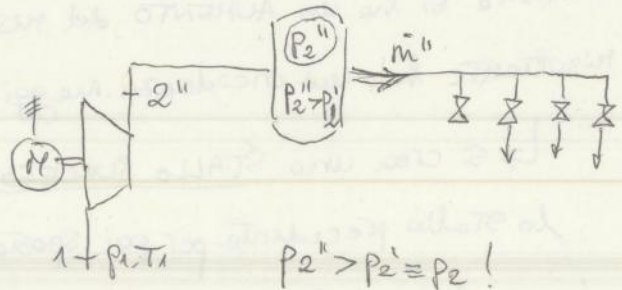 p2"
ṁ"
2"
p2" > p2'
M
1 p1, T1
p2" > p2' ≡ p2 !